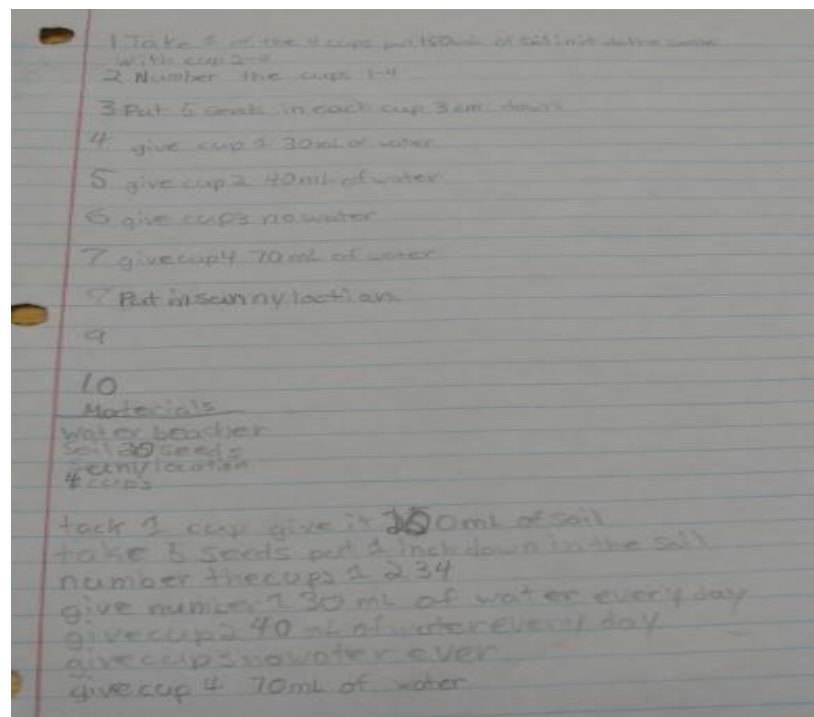 1 Take 1 of the 4 cups put 150mL of soil in it do the same
with cup 2-4
2 Number the cups 1-4
3 Put 5 seeds in each cup 3 cm down
4 give cup 1 30mL of water
5 give cup 2 40mL of water
6 give cup 3 no water
7 give cup 4 70mL of water
8 Put in sunny loction
9
10
Materials
water beacher
soil 20 seeds
suny location
4 cups
tack 1 cup give it 150mL of soil
take 5 seeds put 1 inch down in the soil
number the cups 1 2 3 4
give number 1 30 mL of water every day
give cup 2 40 mL of water every day
give cup 3 no water ever
give cup 4 70mL of water